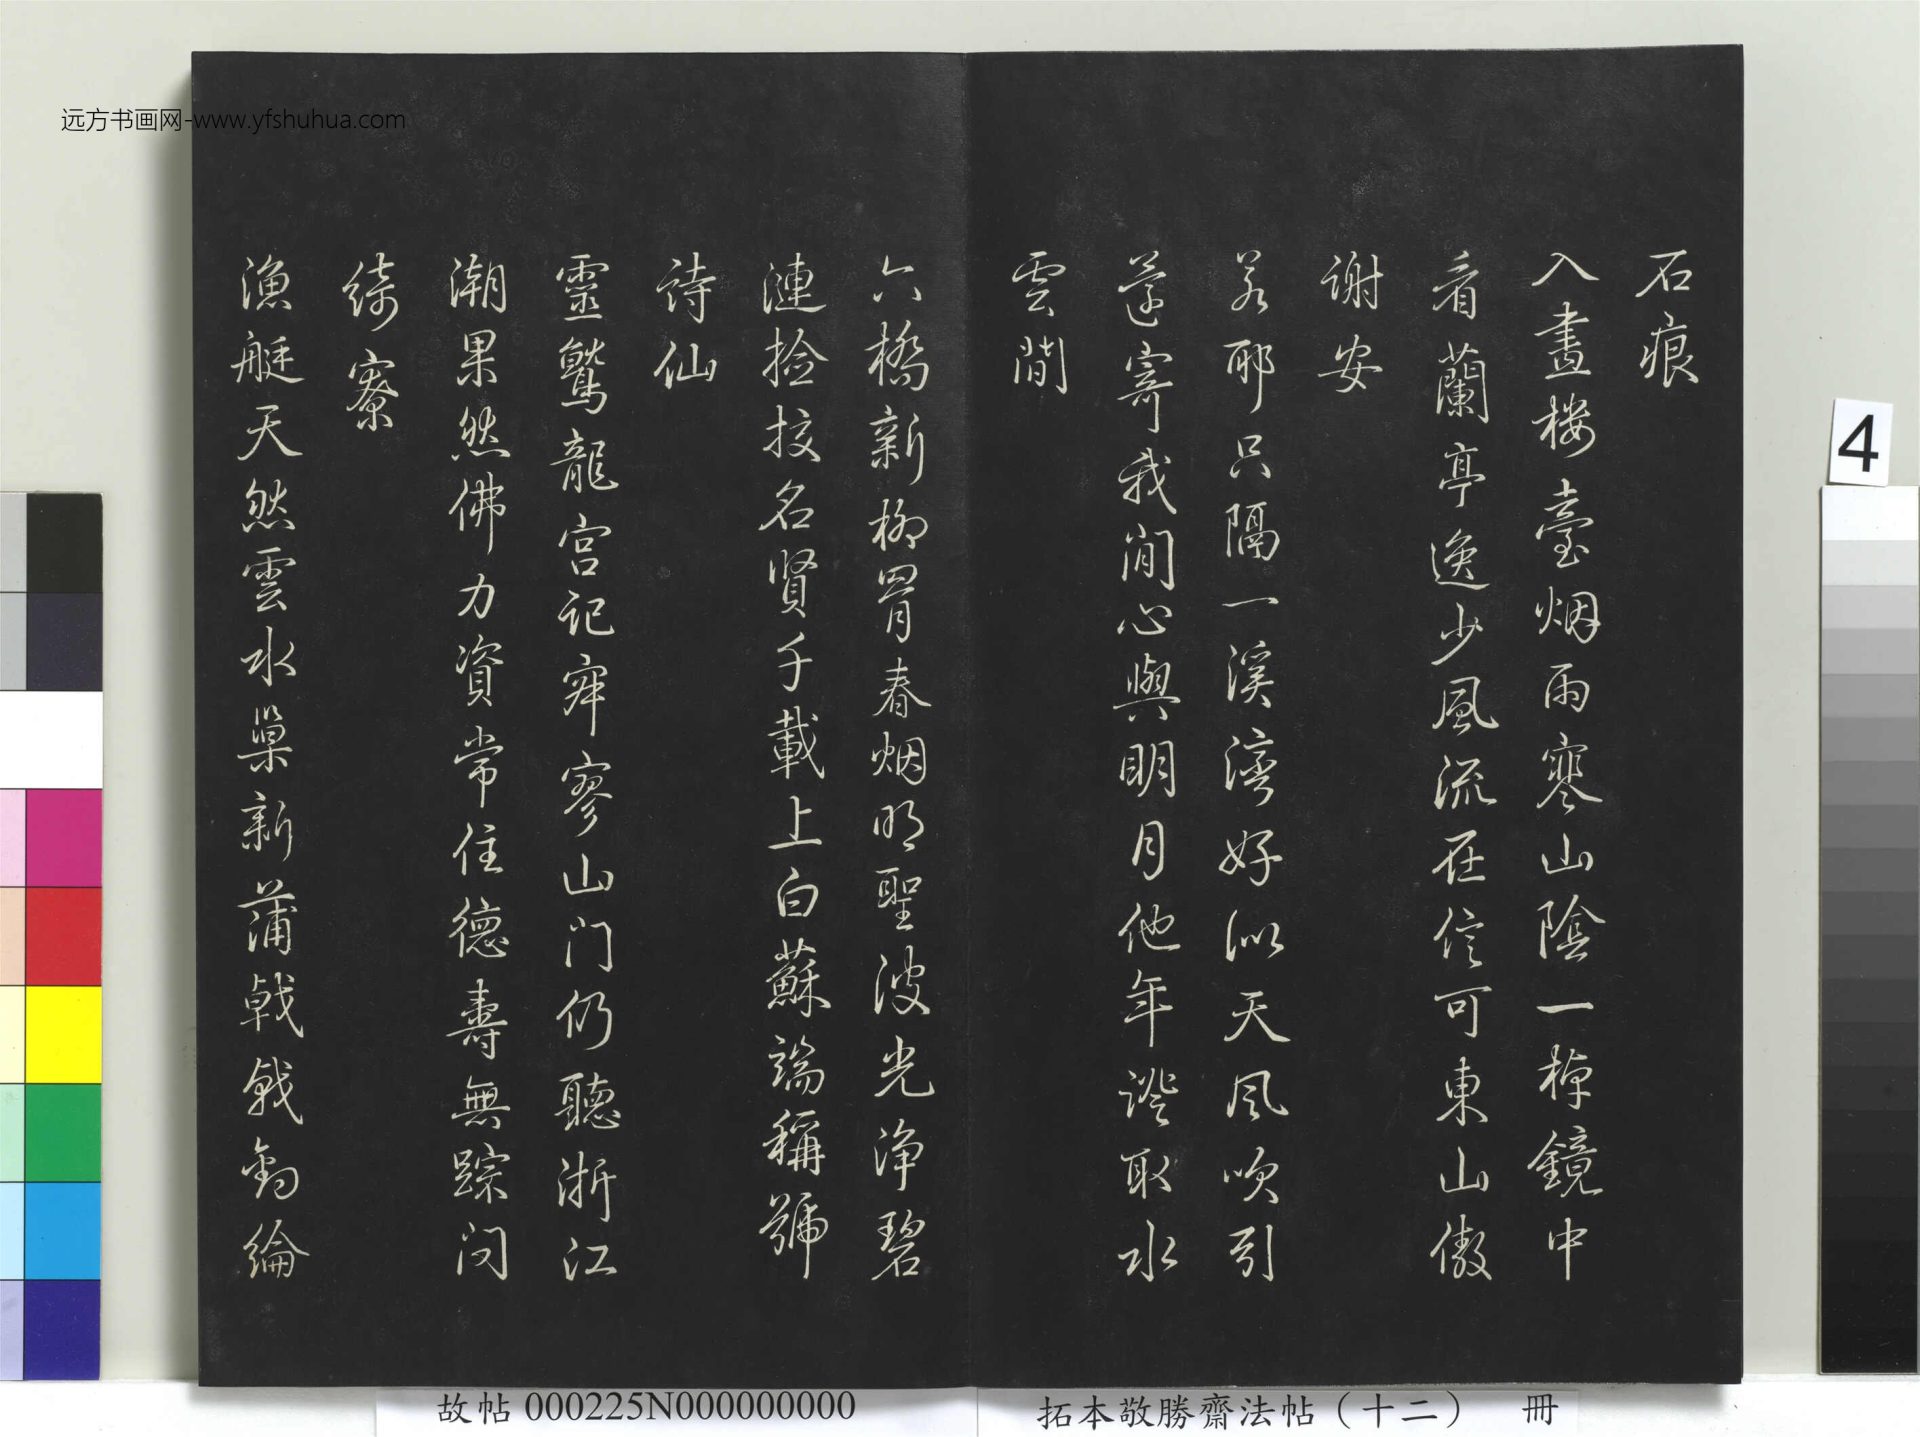 远方书画网-www.yfshuhua.com
石痕
入畫楼臺烟雨寒山陰一棹鏡中
看蘭亭逸少風流在信可東山傲
谢安
若耶只隔一溪灣好似天風吹引
還寄我閒心與明月他年證取水
雲間
六橋新柳罥春烟明聖波光浄碧
漣捡挍名賢千載上白蘇端稱號
詩仙
靈鷲龍宫记窂寥山门仍聽浙江
潮果然佛力資常住德壽無踪问
綺寮
漁艇天然雲水巢新蒲戟戟釣綸
4
故帖 000225N000000000
拓本敬勝齋法帖（十二） 冊